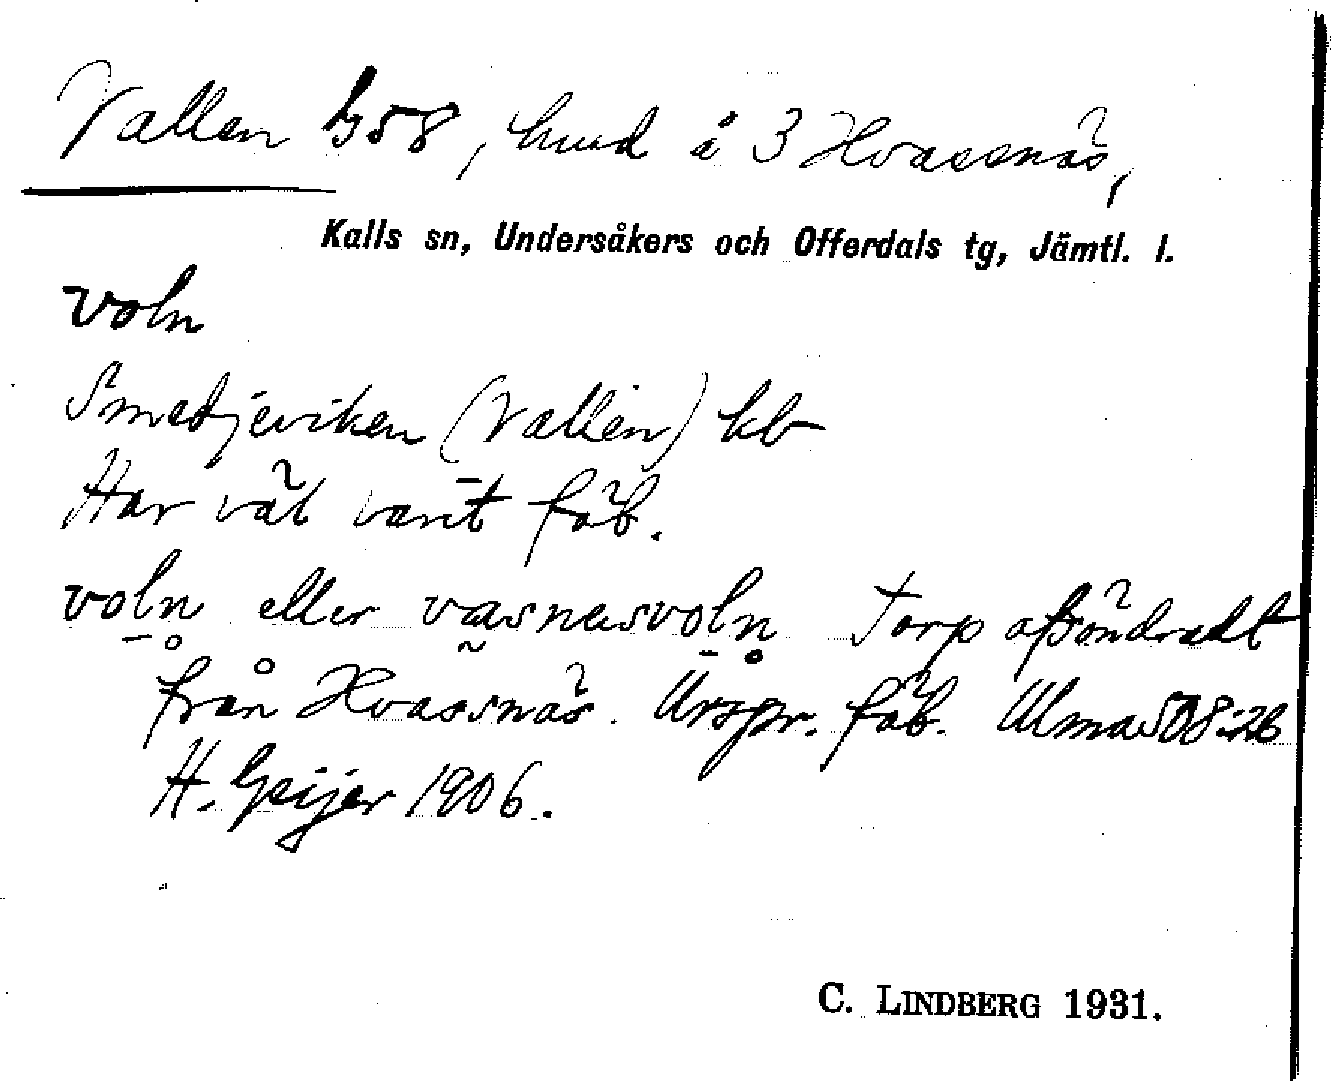 Vallen G58, hmd å 3 Hvassnäs,
Kalls sn, Undersåkers och Offerdals tg, Jämtl. l.
voln
Smedjeviken (Vallen) kb
Har väl varit fäb.
voln eller vasnasvoln Torp afsöndradt
från Hvassnäs. Urspr. fäb. Ulma 508:26
H. Geijer 1906.
C. LINDBERG 1931.